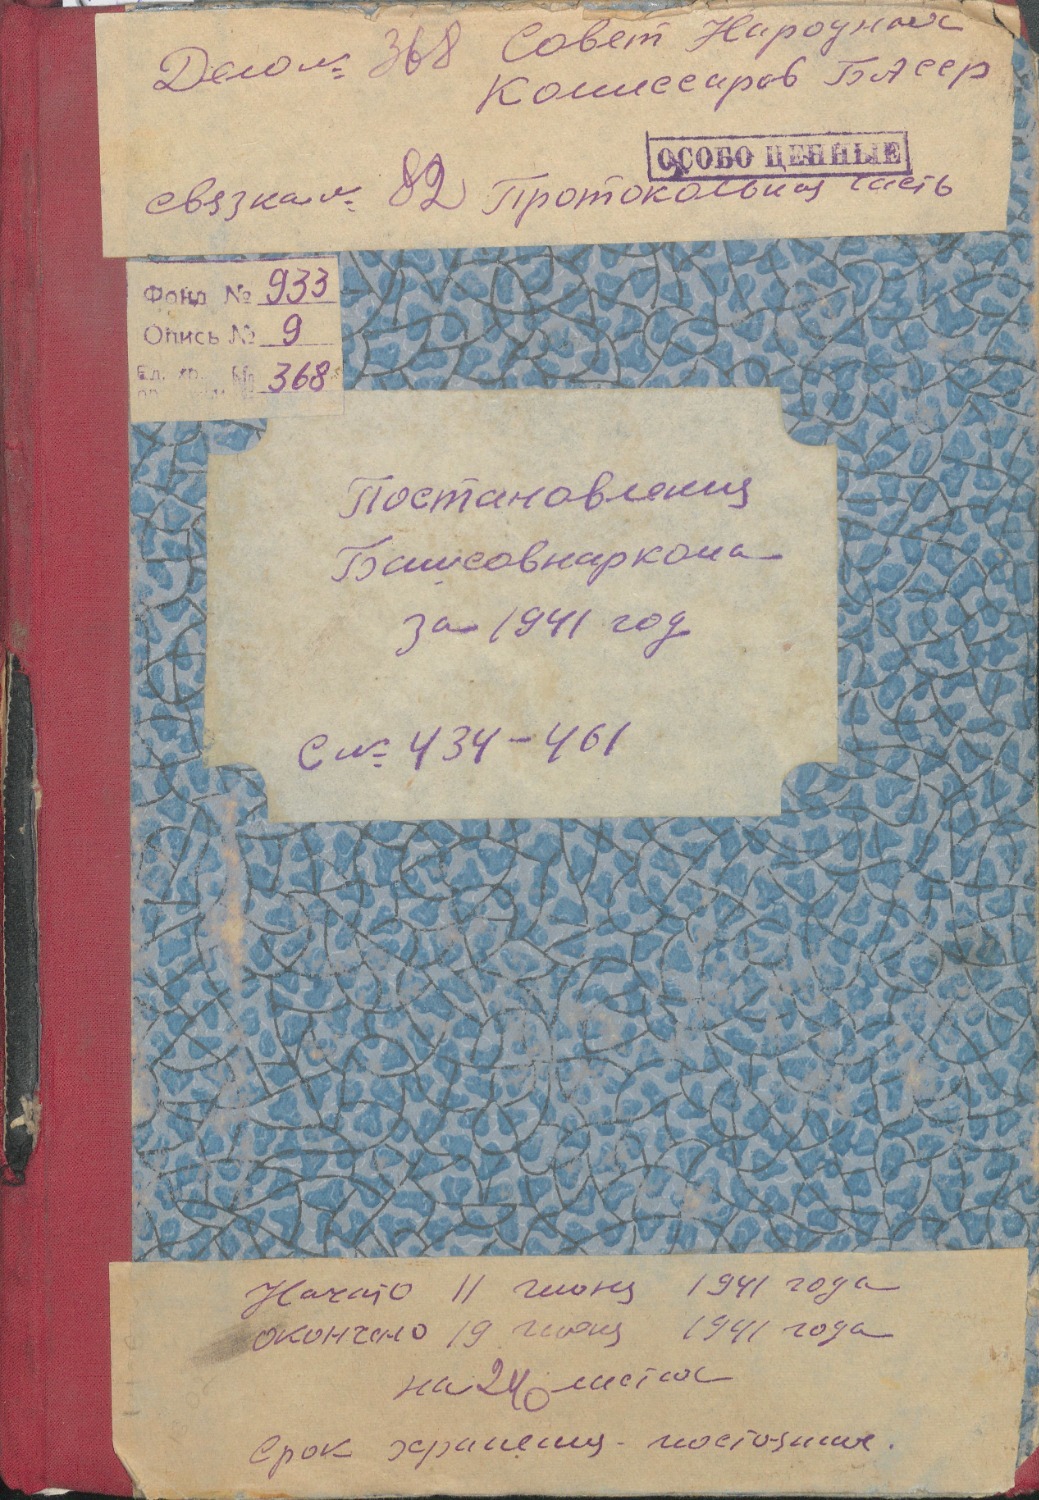 Дело № 368 Совет Народных
Комиссаров БАССР
ОСОБО ЦЕННЫЕ
связка № 82 Протокольная часть
Фонд № 933
Опись № 9
Ед. хр. № 368
Постановления
Башсовнаркома
за 1941 год
С № 434-461
Начато 11 июня 1941 года
окончено 19 июня 1941 года
на листах
Срок хранения - постоянно.